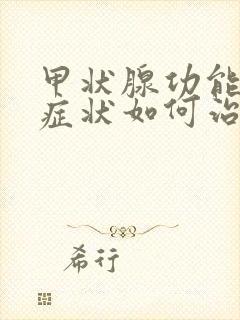 甲状腺功能
症状如何治
希行